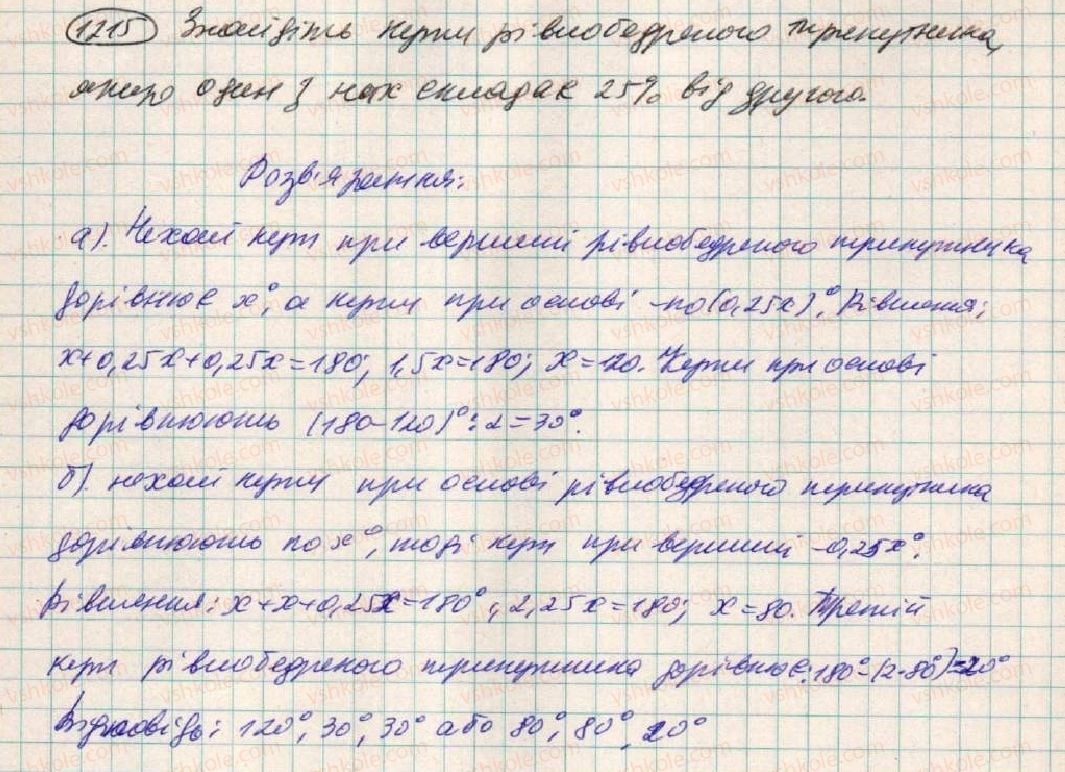 1215 Знайдіть кути рівнобедреного трикутника,
якщо один з них складає 25% від другого.
Розв'язання:
а). Нехай кут при вершині рівнобедреного трикутника
дорівнює x°, а кути при основі - по (0,25x)°. Рівняння:
x+0,25x+0,25x=180; 1,5x=180; x=120. Кути при основі
дорівнюють (180-120)°:2=30°.
б). нехай кути при основі рівнобедреного трикутника
дорівнюють по x°, тоді кут при вершині -0,25x°.
Рівняння: x+x+0,25x=180°; 2,25x=180; x=80. Третій
кут рівнобедреного трикутника дорівнює: 180°-(2·80°)=20°
Відповідь: 120°, 30°, 30° або 80°, 80°, 20°